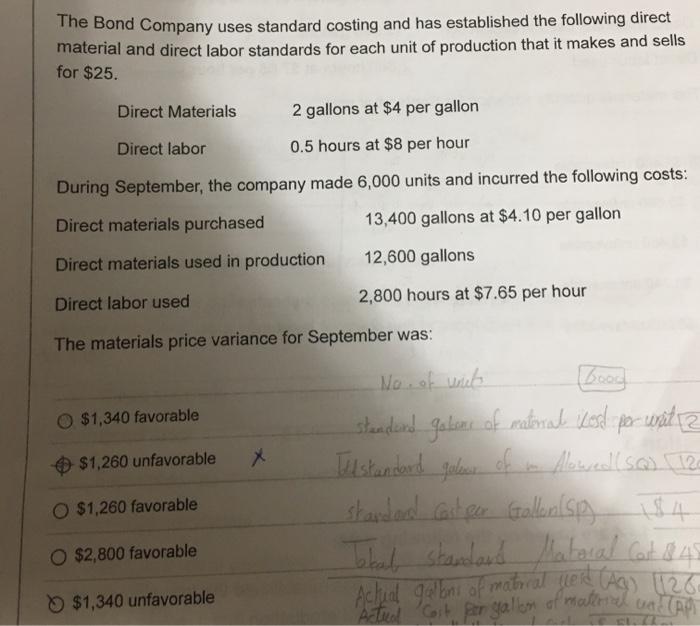 The Bond Company uses standard costing and has established the following direct
material and direct labor standards for each unit of production that it makes and sells
for $25.
Direct Materials 2 gallons at $4 per gallon
Direct labor 0.5 hours at $8 per hour
During September, the company made 6,000 units and incurred the following costs:
Direct materials purchased 13,400 gallons at $4.10 per gallon
Direct materials used in production 12,600 gallons
Direct labor used 2,800 hours at $7.65 per hour
The materials price variance for September was:
No. of units
$1,340 favorable
of material per unit 2
$1,260 unfavorable x
standard of Allowed (SQ)
$1,260 favorable
standard Cost per Gallon (SP) $4
$2,800 favorable
Total standard Material Cost
$1,340 unfavorable
Actual of material (AQ)
Actual Cost per gallon of material